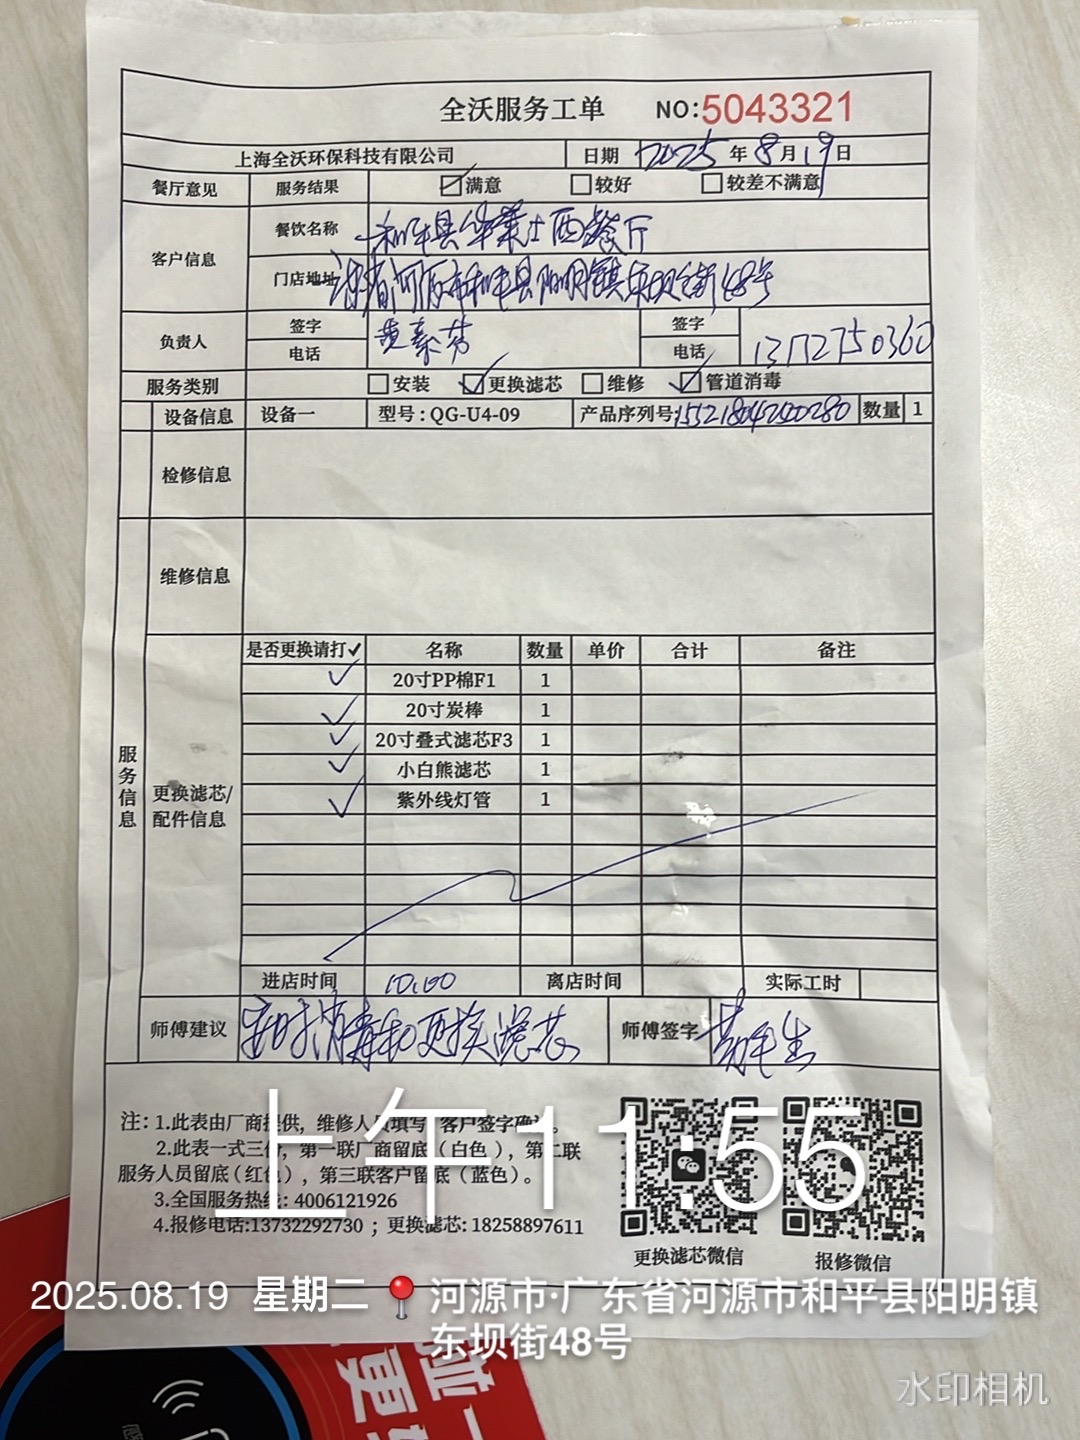 全沃服务工单 NO:5043321
上海全沃环保科技有限公司 日期 2025年8月19日
餐厅意见 服务结果 ☑满意 □较好 □较差不满意
客户信息 餐饮名称 和平县华莱士西餐厅
门店地址 河源市和平县阳明镇东坝街48号
负责人 签字 签字
电话 电话 13727750360
服务类别 □安装 ☑更换滤芯 □维修 ☑管道消毒
设备信息 设备一 型号:QG-U4-09 产品序列号: 数量 1
检修信息
维修信息
服务信息
更换滤芯/配件信息
是否更换请打✓ 名称 数量 单价 合计 备注
✓ 20寸PP棉F1 1
✓ 20寸炭棒 1
✓ 20寸叠式滤芯F3 1
✓ 小白熊滤芯 1
✓ 紫外线灯管 1
进店时间 10:00 离店时间 实际工时
师傅建议 定时消毒和更换滤芯 师傅签字
注: 1.此表由厂商提供，维修人员填写 客户签字确认。
2.此表一式三份，第一联厂商留底（白色），第二联
服务人员留底（红色），第三联客户留底（蓝色）。
3.全国服务热线: 4006121926
4.报修电话:13732292730 ；更换滤芯: 18258897611
更换滤芯微信 报修微信
上午11:55
2025.08.19 星期二 河源市·广东省河源市和平县阳明镇
东坝街48号
水印相机